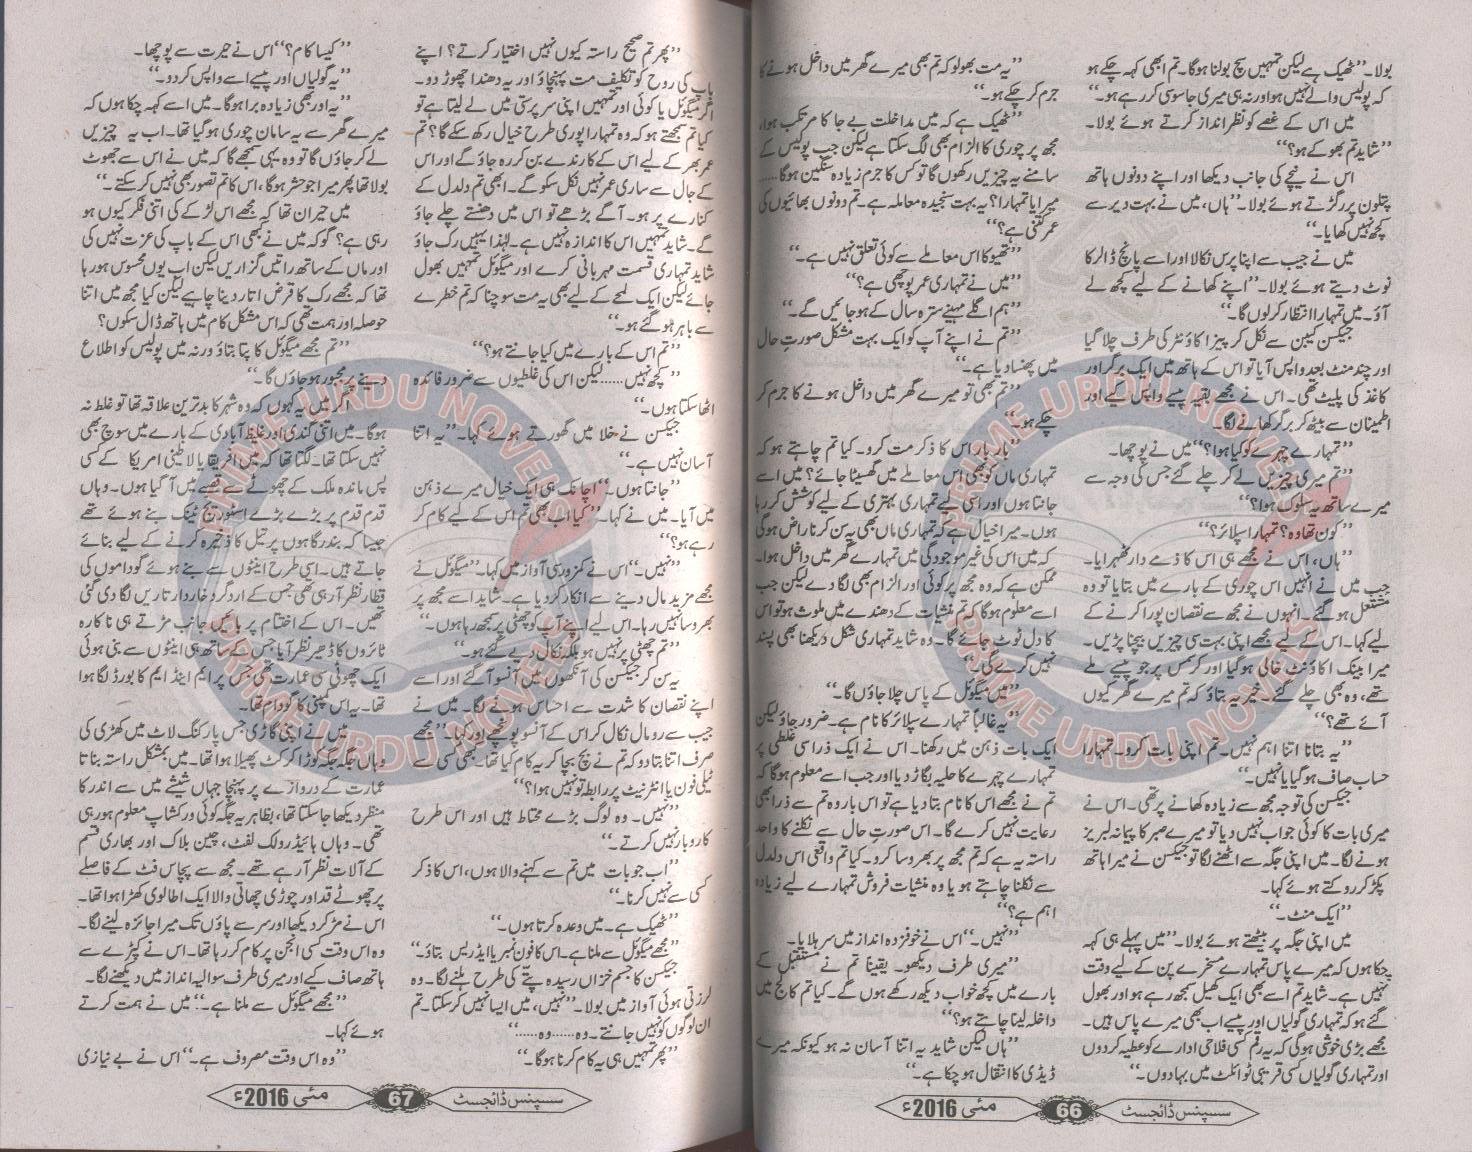 بولا۔ ’’ٹھیک ہے لیکن تمہیں سچ بولنا ہوگا۔ تم ابھی کہہ چکے ہو
کہ پولیس والے نہیں ہو اور نہ ہی میری جاسوسی کر رہے ہو۔‘‘
میں اس کے غصے کو نظر انداز کرتے ہوئے بولا۔
’’شاید تم بھوکے ہو؟‘‘
اس نے نیچے کی جانب دیکھا اور اپنے دونوں ہاتھ
پتلون پر رگڑتے ہوئے بولا۔ ’’ہاں، میں نے بہت دیر سے
کچھ نہیں کھایا۔‘‘
میں نے جیب سے اپنا پرس نکالا اور اسے پانچ ڈالر کا
نوٹ دیتے ہوئے بولا۔ ’’اپنے کھانے کے لیے کچھ لے
آؤ۔ میں تمہارا انتظار کرلوں گا۔‘‘
جیکسن کیبن سے نکل کر پیزا کاؤنٹر کی طرف چلا گیا
اور چند منٹ بعد واپس آیا تو اس کے ہاتھ میں ایک برگر اور
کاغذ کی پلیٹ تھی۔ اس نے مجھے بقیہ پیسے واپس کیے اور
اطمینان سے بیٹھ کر برگر کھانے لگا۔
’’تمہارے چہرے کو کیا ہوا؟‘‘ میں نے پوچھا۔
’’تم میری چیزیں لے کر چلے گئے جس کی وجہ سے
میرے ساتھ یہ سلوک ہوا؟‘‘
’’کون تھا وہ؟ تمہارا سپلائر؟‘‘
’’ہاں، اس نے مجھے ہی اس کا ذمے دار ٹھہرایا۔
جب میں نے انہیں اس چوری کے بارے میں بتایا تو وہ
مشتعل ہو گئے۔ انہوں نے مجھ سے نقصان پورا کرنے کے
لیے کہا۔ اس کے لیے مجھے اپنی بہت سی چیزیں بیچنا پڑیں۔
میرا بینک اکاؤنٹ خالی ہو گیا اور کرسمس پر جو پیسے ملے
تھے، وہ بھی چلے گئے۔ خیر یہ بتاؤ کہ تم میرے گھر کیوں
آئے تھے؟‘‘
’’یہ بتانا اتنا اہم نہیں۔ تم اپنی بات کرو۔ تمہارا
حساب صاف ہو گیا یا نہیں۔‘‘
جیکسن کی توجہ مجھ سے زیادہ کھانے پر تھی۔ اس نے
میری بات کا کوئی جواب نہیں دیا تو میرے صبر کا پیمانہ لبریز
ہونے لگا۔ میں اپنی جگہ سے اٹھنے لگا تو جیکسن نے میرا ہاتھ
پکڑ کر روکتے ہوئے کہا۔
’’ایک منٹ۔‘‘
میں اپنی جگہ پر بیٹھتے ہوئے بولا۔ ’’میں پہلے ہی کہہ
چکا ہوں کہ میرے پاس تمہارے مسخرے پن کے لیے وقت
نہیں ہے۔ شاید تم اسے بھی ایک کھیل سمجھ رہے ہو اور بھول
گئے ہو کہ تمہاری گولیاں اور پیسے اب بھی میرے پاس ہیں۔
مجھے بڑی خوشی ہوگی کہ یہ رقم کسی فلاحی ادارے کو عطیہ کر دوں
اور تمہاری گولیاں کسی قریبی ٹوائلٹ میں بہا دوں۔‘‘
’’یہ مت بھولو کہ تم بھی میرے گھر میں داخل ہونے کا
جرم کر چکے ہو۔‘‘
’’ٹھیک ہے کہ میں مداخلت بے جا کا مرتکب ہوا،
مجھ پر چوری کا الزام بھی لگ سکتا ہے لیکن جب پولیس کے
سامنے یہ چیزیں رکھوں گا تو کس کا جرم زیادہ سنگین ہوگا.....
میرا یا تمہارا؟ یہ بہت سنجیدہ معاملہ ہے۔ تم دونوں بھائیوں کی
عمر کتنی ہے؟‘‘
’’تھیو کا اس معاملے سے کوئی تعلق نہیں ہے۔‘‘
’’میں نے تمہاری عمر پوچھی ہے؟‘‘
’’ہم اگلے مہینے سترہ سال کے ہو جائیں گے۔‘‘
’’تم نے اپنے آپ کو ایک بہت مشکل صورتِ حال
میں پھنسا دیا ہے۔‘‘
’’تم بھی تو میرے گھر میں داخل ہونے کا جرم کر
چکے ہو۔‘‘
’’بار بار اس کا ذکر مت کرو۔ کیا تم چاہتے ہو کہ
تمہاری ماں کو بھی اس معاملے میں گھسیٹا جائے؟ میں اسے
جانتا ہوں اور اسی لیے تمہاری بہتری کے لیے کوشش کر رہا
ہوں۔ میرا خیال ہے کہ تمہاری ماں بھی یہ سن کر ناراض ہوگی
کہ میں اس کی غیر موجودگی میں تمہارے گھر میں داخل ہوا۔
ممکن ہے کہ وہ مجھ پر کوئی اور الزام بھی لگا دے لیکن جب
اسے معلوم ہوگا کہ تم منشیات کے دھندے میں ملوث ہو تو اس
کا دل ٹوٹ جائے گا۔ وہ شاید تمہاری شکل دیکھنا بھی پسند
نہیں کرے گی۔‘‘
’’میں میگوئل کے پاس چلا جاؤں گا۔‘‘
’’یہ غالباً تمہارے سپلائر کا نام ہے۔ ضرور جاؤ لیکن
ایک بات ذہن میں رکھنا۔ اس نے ایک ذرا سی غلطی پر
تمہارے چہرے کا حلیہ بگاڑ دیا اور جب اسے معلوم ہوگا کہ
تم نے مجھے اس کا نام بتا دیا ہے تو اس بار وہ تم سے ذرا بھی
رعایت نہیں کرے گا۔ اس صورتِ حال سے نکلنے کا واحد
راستہ یہ ہے کہ تم مجھ پر بھروسا کرو۔ کیا تم واقعی اس دلدل
سے نکلنا چاہتے ہو یا وہ منشیات فروش تمہارے لیے زیادہ
اہم ہے؟‘‘
’’نہیں۔‘‘ اس نے خوفزدہ انداز میں سر ہلایا۔
’’میری طرف دیکھو۔ یقینا تم نے مستقبل کے
بارے میں کچھ خواب دیکھ رکھے ہوں گے۔ کیا تم کالج میں
داخلہ لینا چاہتے ہو؟‘‘
’’ہاں لیکن شاید یہ اتنا آسان نہ ہو کیونکہ میرے
ڈیڈی کا انتقال ہو چکا ہے۔‘‘
سسپنس ڈائجسٹ 66 مئی 2016ء
’’پھر تم صحیح راستہ کیوں نہیں اختیار کرتے؟ اپنے
باپ کی روح کو تکلیف مت پہنچاؤ اور یہ دھندا چھوڑ دو۔
اگر میگوئل یا کوئی اور تمہیں اپنی سرپرستی میں لے لیتا ہے تو
کیا تم سمجھتے ہو کہ وہ تمہارا پوری طرح خیال رکھ سکے گا؟ تم
عمر بھر کے لیے اس کے کارندے بن کر رہ جاؤ گے اور اس
کے جال سے ساری عمر نہیں نکل سکو گے۔ ابھی تم دلدل کے
کنارے پر ہو۔ آگے بڑھے تو اس میں دھنستے چلے جاؤ
گے۔ شاید تمہیں اس کا اندازہ نہیں ہے۔ لہٰذا یہیں رک جاؤ
شاید تمہاری قسمت مہربانی کرے اور میگوئل تمہیں بھول
جائے لیکن ایک لمحے کے لیے بھی یہ مت سوچنا کہ تم خطرے
سے باہر ہو گئے ہو۔‘‘
’’تم اس کے بارے میں کیا جانتے ہو؟‘‘
’’کچھ نہیں...... لیکن اس کی غلطیوں سے ضرور فائدہ
اٹھا سکتا ہوں۔‘‘
جیکسن نے خلا میں گھورتے ہوئے کہا۔ ’’یہ اتنا
آسان نہیں ہے۔‘‘
’’جانتا ہوں۔‘‘ اچانک ہی ایک خیال میرے ذہن
میں آیا۔ میں نے کہا۔ ’’کیا اب بھی تم اس کے لیے کام کر
رہے ہو؟‘‘
’’نہیں۔‘‘ اس نے کمزور سی آواز میں کہا۔ ’’میگوئل نے
مجھے مزید مال دینے سے انکار کر دیا ہے۔ شاید اسے مجھ پر
بھروسا نہیں رہا۔ اس لیے اپنے آپ کو چھٹی پر سمجھ رہا ہوں۔‘‘
’’تم چھٹی پر نہیں ہو بلکہ نکال دیے گئے ہو۔‘‘
یہ سن کر جیکسن کی آنکھوں میں آنسو آگئے اور اسے
اپنے نقصان کا شدت سے احساس ہونے لگا۔ میں نے
جیب سے رومال نکال کر اس کے آنسو پونچھے اور کہا۔ ’’مجھے
صرف اتنا بتا دو کہ تم نے بچ بچا کر یہ کام کیا تھا۔ کبھی کسی سے
ٹیلی فون یا انٹرنیٹ پر رابطہ تو نہیں ہوا؟‘‘
’’نہیں۔ وہ لوگ بڑے محتاط ہیں اور اس طرح
کاروبار نہیں کرتے۔‘‘
’’اب جو بات میں تم سے کہنے والا ہوں، اس کا ذکر
کسی سے نہیں کرنا۔‘‘
’’ٹھیک ہے۔ میں وعدہ کرتا ہوں۔‘‘
’’مجھے میگوئل سے ملنا ہے۔ اس کا فون نمبر یا ایڈریس بتاؤ۔‘‘
جیکسن کا جسم خزاں رسیدہ پتے کی طرح ہلنے لگا۔ وہ
لرزتی ہوئی آواز میں بولا۔ ’’نہیں، میں ایسا نہیں کر سکتا۔ تم
ان لوگوں کو نہیں جانتے۔ وہ...... وہ......‘‘
’’پھر تمہیں ہی یہ کام کرنا ہوگا۔‘‘
’’کیسا کام؟‘‘ اس نے حیرت سے پوچھا۔
’’یہ گولیاں اور پیسے اسے واپس کر دو۔‘‘
’’یہ اور بھی زیادہ برا ہوگا۔ میں اسے کہہ چکا ہوں کہ
میرے گھر سے یہ سامان چوری ہو گیا تھا۔ اب یہ چیزیں
لے کر جاؤں گا تو وہ یہی سمجھے گا کہ میں نے اس سے جھوٹ
بولا تھا پھر میرا جو حشر ہوگا، اس کا تم تصور بھی نہیں کر سکتے۔‘‘
میں حیران تھا کہ مجھے اس لڑکے کی اتنی فکر کیوں ہو
رہی ہے؟ گو کہ میں نے کبھی اس کے باپ کی عزت نہیں کی
اور ماں کے ساتھ راتیں گزاریں لیکن اب یوں محسوس ہو رہا
تھا کہ مجھے رک کا قرض اتار دینا چاہیے لیکن کیا مجھ میں اتنا
حوصلہ اور ہمت تھی کہ اس مشکل کام میں ہاتھ ڈال سکوں؟
’’تم مجھے میگوئل کا پتا بتاؤ ورنہ میں پولیس کو اطلاع
دینے پر مجبور ہو جاؤں گا۔‘‘
اگر میں یہ کہوں کہ وہ شہر کا بدترین علاقہ تھا تو غلط نہ
ہوگا۔ میں اتنی گندی اور غلیظ آبادی کے بارے میں سوچ بھی
نہیں سکتا تھا۔ لگتا تھا کہ میں افریقا یا لاطینی امریکا کے کسی
پس ماندہ ملک کے چھوٹے سے قصبے میں آگیا ہوں۔ وہاں
قدم قدم پر بڑے بڑے اسٹوریج ٹینک بنے ہوئے تھے
جیسا کہ بندرگاہوں پر تیل کا ذخیرہ کرنے کے لیے بنائے
جاتے ہیں۔ اسی طرح اینٹوں سے بنے ہوئے گوداموں کی
قطار نظر آرہی تھی جس کے ارد گرد خاردار تاریں لگا دی گئی
تھیں۔ اس کے اختتام پر بائیں جانب مڑتے ہی ناکارہ
ٹائروں کا ڈھیر نظر آیا جس کے ساتھ ہی اینٹوں سے بنی ہوئی
ایک چھوٹی سی عمارت تھی جس پر ایم اینڈ ایم کا بورڈ لگا ہوا
تھا۔ یہ اس کمپنی کا گودام تھا۔
میں نے اپنی گاڑی جس پارکنگ لاٹ میں کھڑی کی
وہاں جگہ جگہ کوڑا کرکٹ پھیلا ہوا تھا۔ میں بمشکل راستہ بناتا
عمارت کے دروازے پر پہنچا جہاں شیشے میں سے اندر کا
منظر دیکھا جا سکتا تھا، بظاہر یہ جگہ کوئی ورکشاپ معلوم ہو رہی
تھی۔ وہاں ہائیڈرولک لفٹ، چین بلاک اور بھاری قسم
کے آلات نظر آرہے تھے۔ مجھ سے پچاس فٹ کے فاصلے
پر چھوٹے قد اور چوڑی چھاتی والا ایک اطالوی کھڑا ہوا تھا۔
اس نے مڑ کر دیکھا اور سر سے پاؤں تک میرا جائزہ لینے لگا۔
وہ اس وقت کسی انجن پر کام کر رہا تھا۔ اس نے کپڑے سے
ہاتھ صاف کیے اور میری طرف سوالیہ انداز میں دیکھنے لگا۔
’’مجھے میگوئل سے ملنا ہے۔‘‘ میں نے ہمت کرتے
ہوئے کہا۔
’’وہ اس وقت مصروف ہے۔‘‘ اس نے بے نیازی
سسپنس ڈائجسٹ 67 مئی 2016ء
PRIME URDU NOVELS
PRIME URDU NOVELS
PRIME URDU NOVELS
PRIME URDU NOVELS